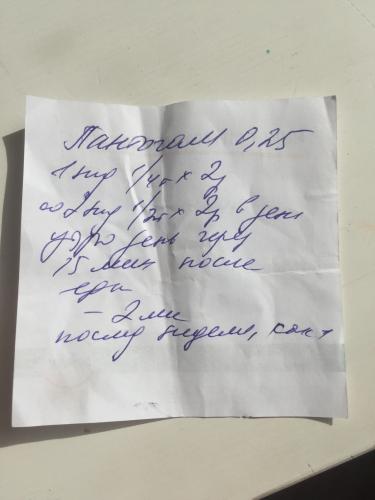 Пантогам 0,25
1 нед 1/4т х 2р
со 2 нед 1/2т х 2р в день
утро день через
15 мин после
еды
– 2 ми
послед неделя,